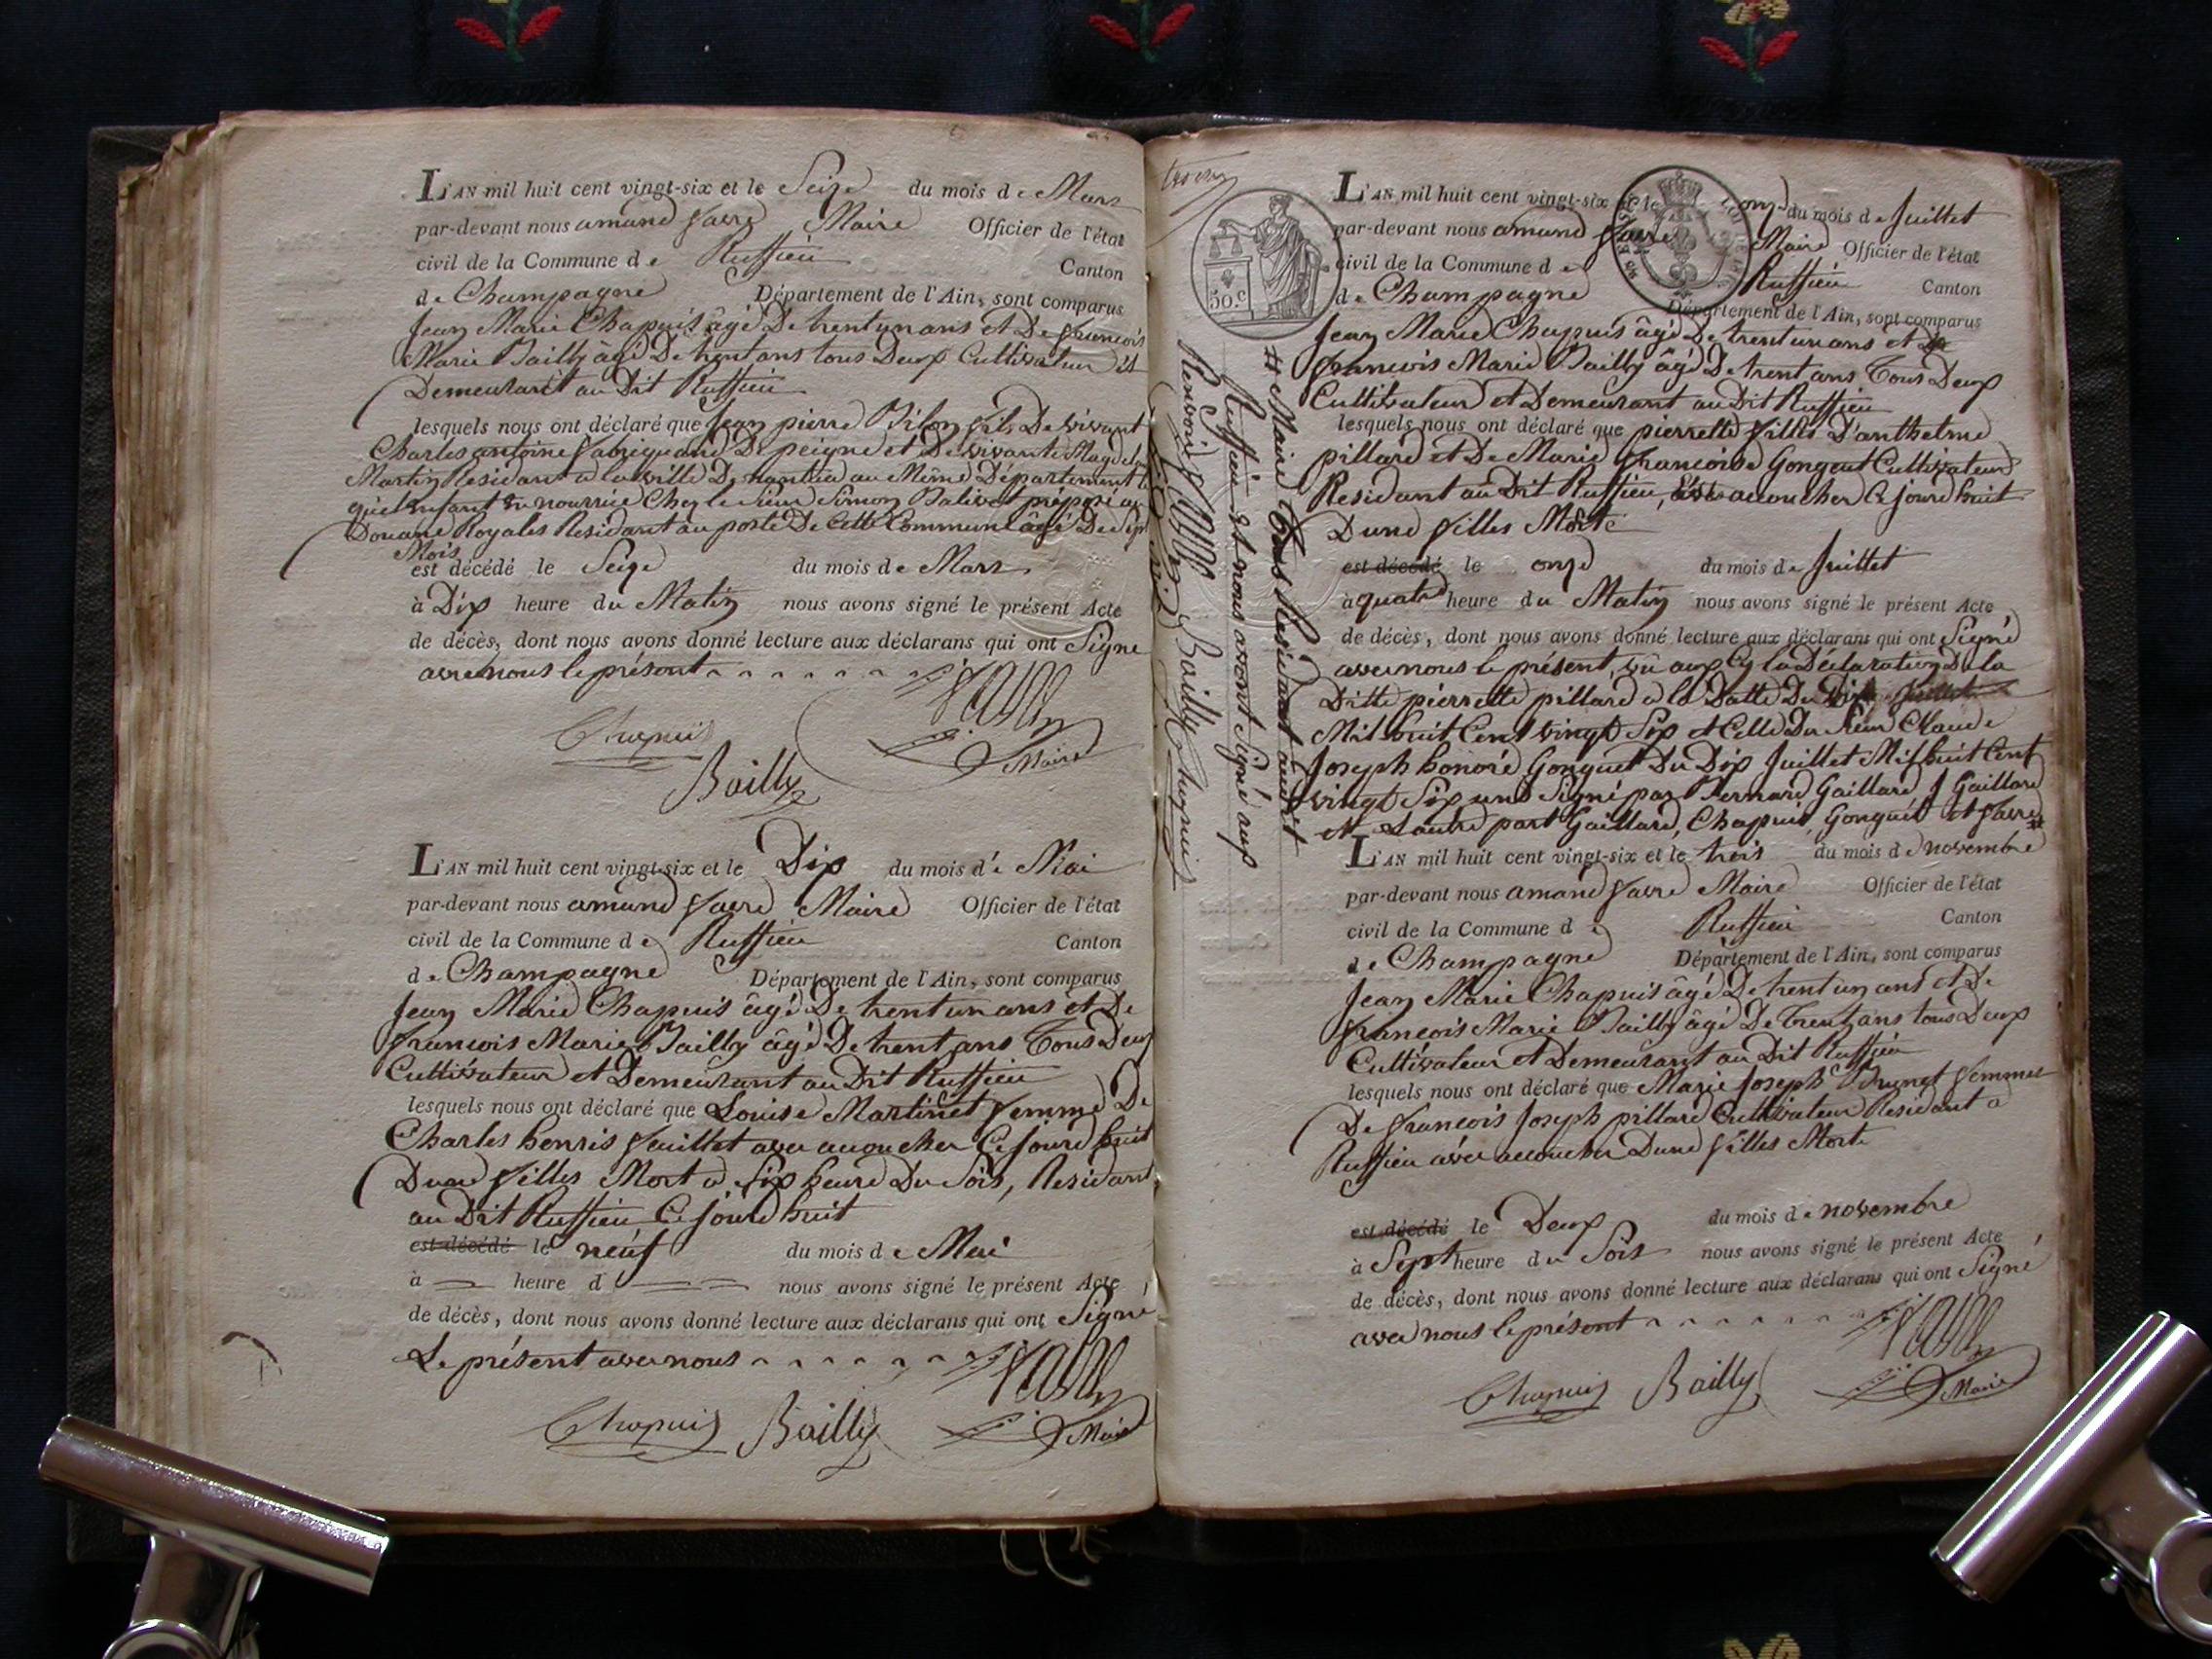 L'AN mil huit cent vingt-six et le Seize du mois de Mars
par-devant nous amand favre Maire Officier de l'état
civil de la Commune de Ruffieu Canton
de Champagne Département de l'Ain, sont comparus
Jean Marie Chapuis âgé De trentunans et De francois
Marie Bailly âgé De trentans tous Deux Cultivateur et
Demeurant au Dit Ruffieu
lesquels nous ont déclaré que Jean pierre fils De vivant
Charles antoine De peigne et De vivante
Martin Residant a la ville De nantua au Même Département
qu'enfant en nourrice Chez le Sieur Simon Balivet préposé au
Douane Royales Residant au poste De Cette Commune âgé De Sept
Mois
est décédé le Seize du mois de Mars
à Dix heure du Matin nous avons signé le présent Acte
de décès, dont nous avons donné lecture aux déclarans qui ont Signé
avec nous le présent
Chapuis
Bailly
favre
Maire
L'AN mil huit cent vingt-six et le Dix du mois de Mai
par-devant nous amand favre Maire Officier de l'état
civil de la Commune de Ruffieu Canton
de Champagne Département de l'Ain, sont comparus
Jean Marie Chapuis âgé De trentunans et De
francois Marie Bailly âgé De trentans Tous Deux
Cultivateur et Demeurant au Dit Ruffieu
lesquels nous ont déclaré que Louise Martinet femme De
Charles henris Juillet avec accoucher Ce jourd huit
Dune filles Mort a Six heure Du Soir, Residant
au Dit Ruffieu Ce jourd huit
est décédé le neuf du mois de Mai
à heure d nous avons signé le présent Acte
de décès, dont nous avons donné lecture aux déclarans qui ont Signé
Le présent avec nous
favre
Chapuis Bailly Maire
50 c
L'AN mil huit cent vingt-six et le onze du mois de Juillet
par-devant nous amand favre Maire Officier de l'état
civil de la Commune de Ruffieu Canton
de Champagne Département de l'Ain, sont comparus
Jean Marie Chapuis âgé De trentunans et De
francois Marie Bailly âgé De trentans Tous Deux
Cultivateur et Demeurant au Dit Ruffieu
lesquels nous ont déclaré que pierrette filles D'anthelme
pillard et De Marie francoise Gonguet Cultivateur
Residant au Dit Ruffieu, avec accoucher Ce jourd huit
Dune filles Morte
est décédé le onze du mois de Juillet
à quatre heure du Matin nous avons signé le présent Acte
de décès, dont nous avons donné lecture aux déclarans qui ont Signé
avec nous le présent, vû aux la Déclaration De la
Ditte pierrette pillard a la Datte Du
Mil huit Cent vingt Six et Celle Du Sieur Claude
Joseph honoré Gonguet Du Dix Juillet Mil huit Cent
vingt Six une Signé par Bernard Gaillard J Gaillard
et Lautre part Gaillard, Chapuis, Gonguet et favre #
# Maire Tous Residant audit
Ruffieu et nous avont Signé aux
Renvoie favre Bailly Chapuis
L'AN mil huit cent vingt-six et le trois du mois de novembre
par-devant nous amand favre Maire Officier de l'état
civil de la Commune de Ruffieu Canton
de Champagne Département de l'Ain, sont comparus
Jean Marie Chapuis âgé De trentunans et De
francois Marie Bailly âgé De trentans tous Deux
Cultivateur et Demeurant au Dit Ruffieu
lesquels nous ont déclaré que Marie Joseph Brunet femme
De francois Joseph pillard Cultivateur Residant a
Ruffieu avec accoucher Dune filles Morte
est décédé le Deux du mois de novembre
à Sept heure du Soir nous avons signé le présent Acte
de décès, dont nous avons donné lecture aux déclarans qui ont Signé
avec nous le présent
favre
Chapuis Bailly Maire